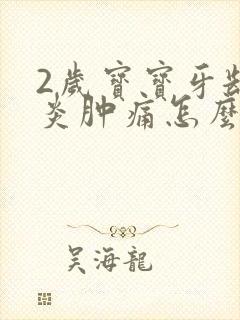 2歲寶寶牙齒
炎肿痛怎麼
吴海龍